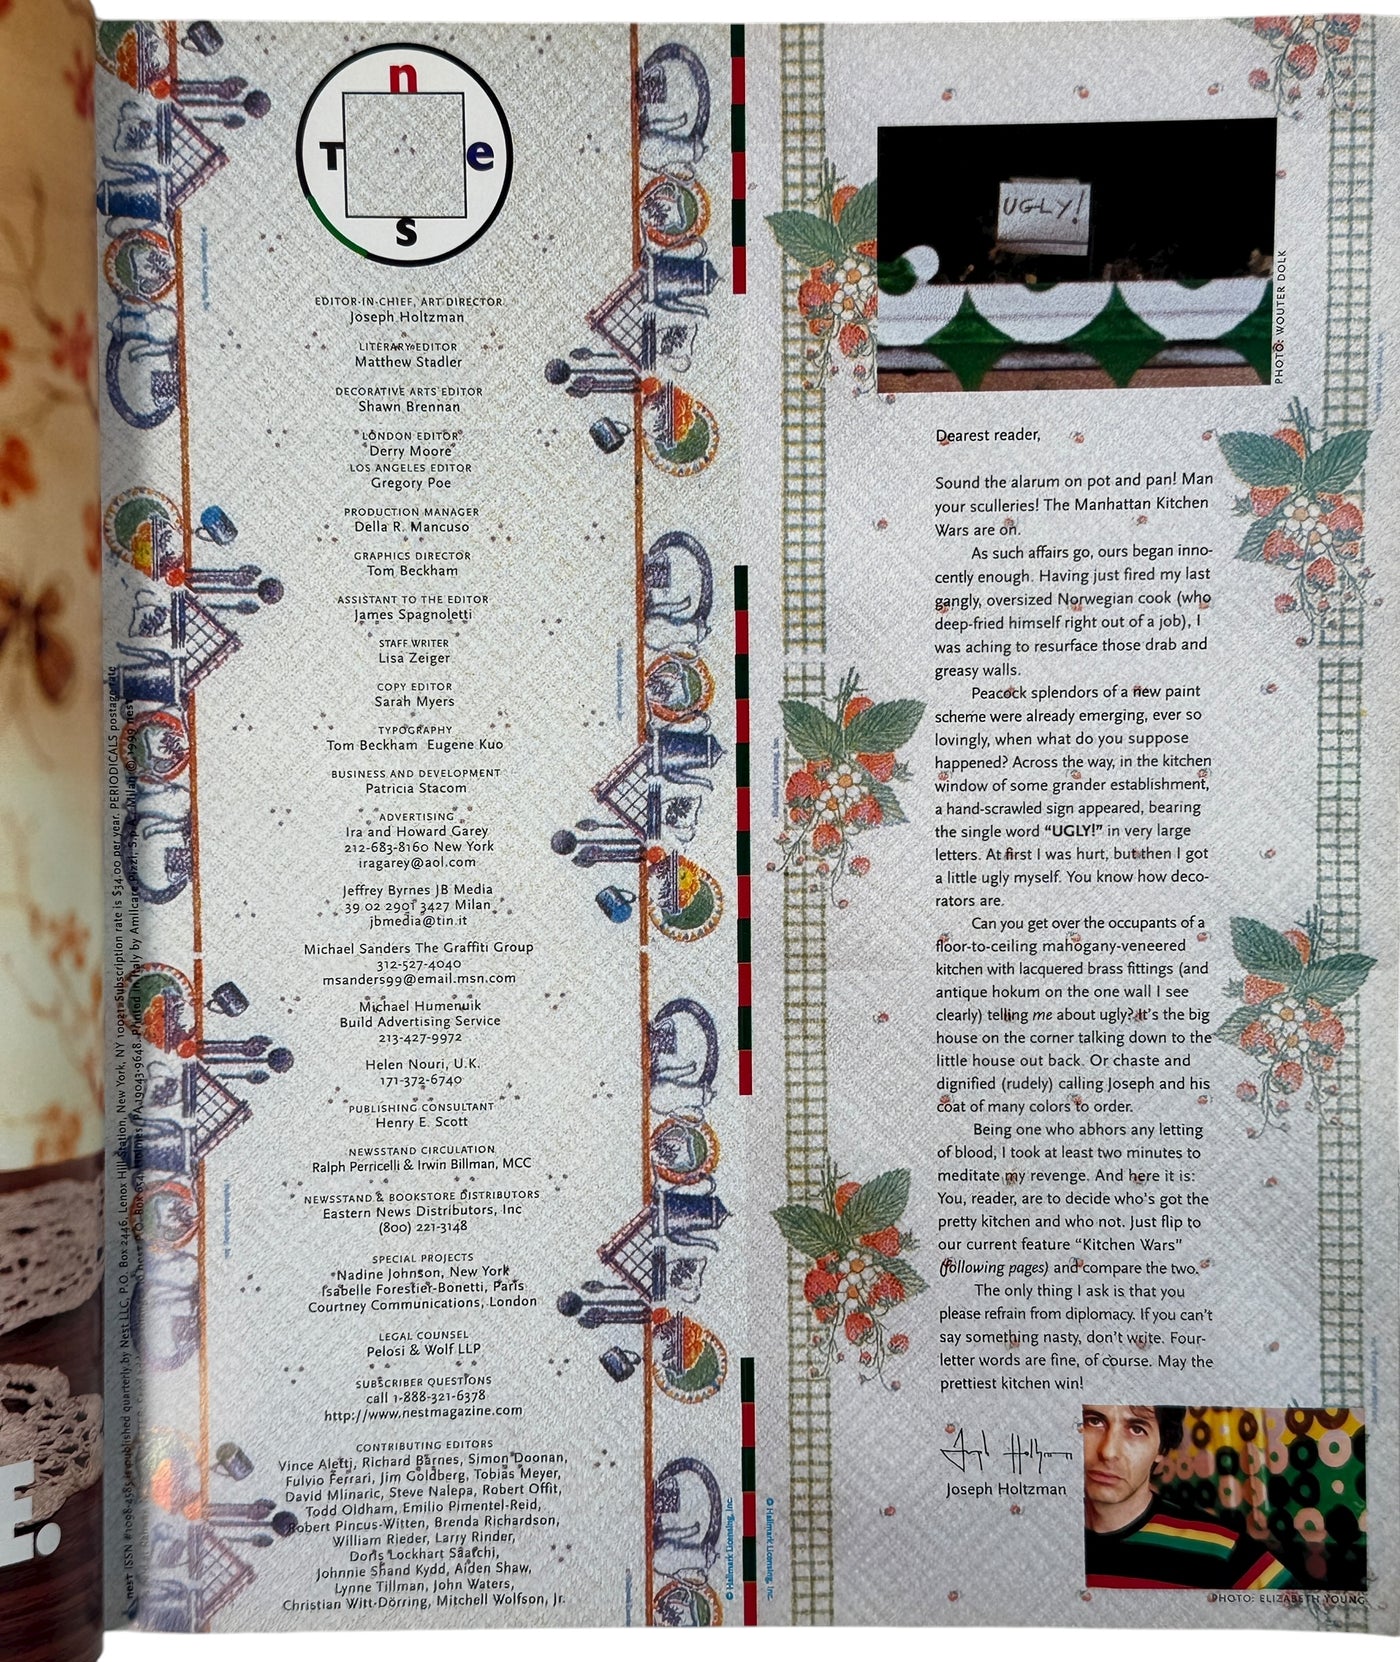 n
T e
S
EDITOR-IN-CHIEF, ART DIRECTOR
Joseph Holtzman
LITERARY EDITOR
Matthew Stadler
DECORATIVE ARTS EDITOR
Shawn Brennan
LONDON EDITOR
Derry Moore
LOS ANGELES EDITOR
Gregory Poe
PRODUCTION MANAGER
Della R. Mancuso
GRAPHICS DIRECTOR
Tom Beckham
ASSISTANT TO THE EDITOR
James Spagnoletti
STAFF WRITER
Lisa Zeiger
COPY EDITOR
Sarah Myers
TYPOGRAPHY
Tom Beckham Eugene Kuo
BUSINESS AND DEVELOPMENT
Patricia Stacom
ADVERTISING
Ira and Howard Garey
212-683-8160 New York
iragarey@aol.com
Jeffrey Byrnes JB Media
39 02 2901 3427 Milan
jbmedia@tin.it
Michael Sanders The Graffiti Group
312-527-4040
msanders99@email.msn.com
Michael Humenuik
Build Advertising Service
213-427-9972
Helen Nouri, U.K.
171-372-6740
PUBLISHING CONSULTANT
Henry E. Scott
NEWSSTAND CIRCULATION
Ralph Perricelli & Irwin Billman, MCC
NEWSSTAND & BOOKSTORE DISTRIBUTORS
Eastern News Distributors, Inc
(800) 221-3148
SPECIAL PROJECTS
Nadine Johnson, New York
Isabelle Forestier-Bonetti, Paris
Courtney Communications, London
LEGAL COUNSEL
Pelosi & Wolf LLP
SUBSCRIBER QUESTIONS
call 1-888-321-6378
http://www.nestmagazine.com
CONTRIBUTING EDITORS
Vince Aletti, Richard Barnes, Simon Doonan,
Fulvio Ferrari, Jim Goldberg, Tobias Meyer,
David Mlinaric, Steve Nalepa, Robert Offit,
Todd Oldham, Emilio Pimentel-Reid,
Robert Pincus-Witten, Brenda Richardson,
William Rieder, Larry Rinder,
Doris Lockhart Saatchi,
Johnnie Shand Kydd, Aiden Shaw,
Lynne Tillman, John Waters,
Christian Witt-Dörring, Mitchell Wolfson, Jr.
nest ISSN #1098-4585 is published quarterly by Nest LLC, P.O. Box 2446, Lenox Hill Station, New York, NY 10021. Subscription rate is $34.00 per year. PERIODICALS postage rate
Holmes, PA 19043-9648. Printed in Italy by Amilcare Pizzi, S.p.A., Milan © 1999 nest
© Hallmark Licensing, Inc.
© Hallmark Licensing, Inc.
UGLY!
PHOTO: WOUTER DOLK
Dearest reader,
Sound the alarum on pot and pan! Man
your sculleries! The Manhattan Kitchen
Wars are on.
As such affairs go, ours began inno-
cently enough. Having just fired my last
gangly, oversized Norwegian cook (who
deep-fried himself right out of a job), I
was aching to resurface those drab and
greasy walls.
Peacock splendors of a new paint
scheme were already emerging, ever so
lovingly, when what do you suppose
happened? Across the way, in the kitchen
window of some grander establishment,
a hand-scrawled sign appeared, bearing
the single word “UGLY!” in very large
letters. At first I was hurt, but then I got
a little ugly myself. You know how deco-
rators are.
Can you get over the occupants of a
floor-to-ceiling mahogany-veneered
kitchen with lacquered brass fittings (and
antique hokum on the one wall I see
clearly) telling me about ugly? It's the big
house on the corner talking down to the
little house out back. Or chaste and
dignified (rudely) calling Joseph and his
coat of many colors to order.
Being one who abhors any letting
of blood, I took at least two minutes to
meditate my revenge. And here it is:
You, reader, are to decide who's got the
pretty kitchen and who not. Just flip to
our current feature “Kitchen Wars”
(following pages) and compare the two.
The only thing I ask is that you
please refrain from diplomacy. If you can't
say something nasty, don't write. Four-
letter words are fine, of course. May the
prettiest kitchen win!
Joseph Holtzman
Joseph Holtzman
PHOTO: ELIZABETH YOUNG
E.